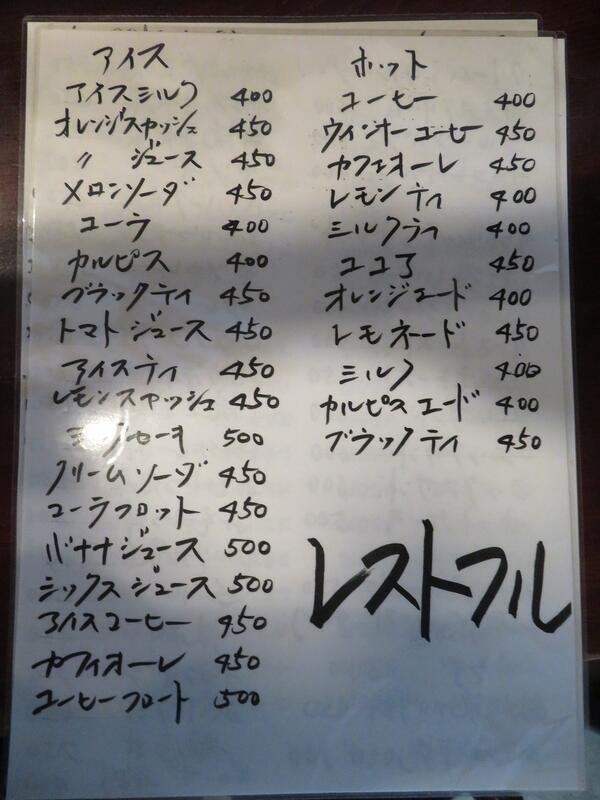 アイス
アイスミルク 400
オレンジスカッシュ 450
〃 ジュース 450
メロンソーダ 450
コーラ 400
カルピス 400
ブラックティ 450
トマトジュース 450
アイスティ 450
レモンスカッシュ 450
ミルクセーキ 500
クリームソーダ 450
コーラフロット 450
バナナジュース 500
ミックスジュース 500
アイスコーヒー 450
カフィオーレ 450
コーヒーフロート 500
ホット
コーヒー 400
ウィンナーコーヒー 450
カフェオーレ 450
レモンティ 400
ミルクティ 400
ココア 450
オレンジエード 400
レモネード 450
ミルク 400
カルピスエード 400
ブラックティ 450
レストフル